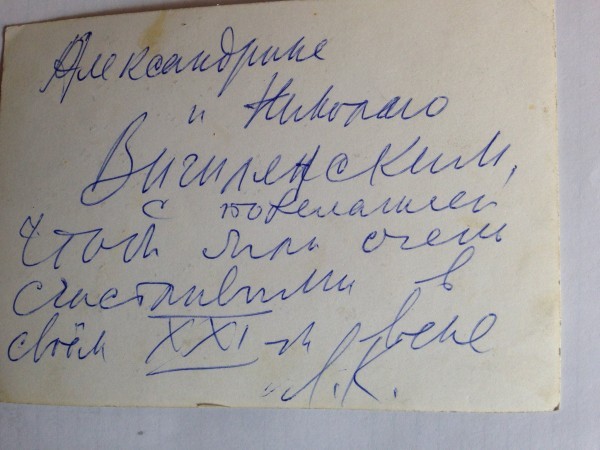 Александрине
и Николаю
Вигилянским,
с пожеланием
чтоб были очень
счастливыми в
своём XXI-м веке
Л.К.